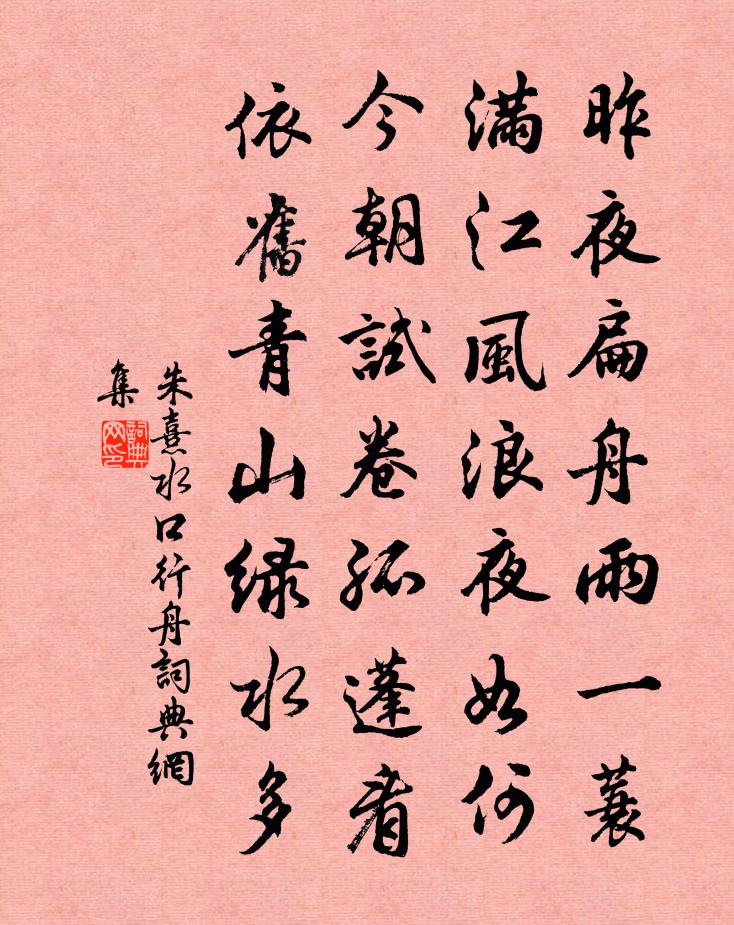 昨夜扁舟雨一蓑
滿江風浪夜如何
今朝試卷孤蓬看
依舊青山绿水多
朱熹水口行舟詞典網
集
詞典网印